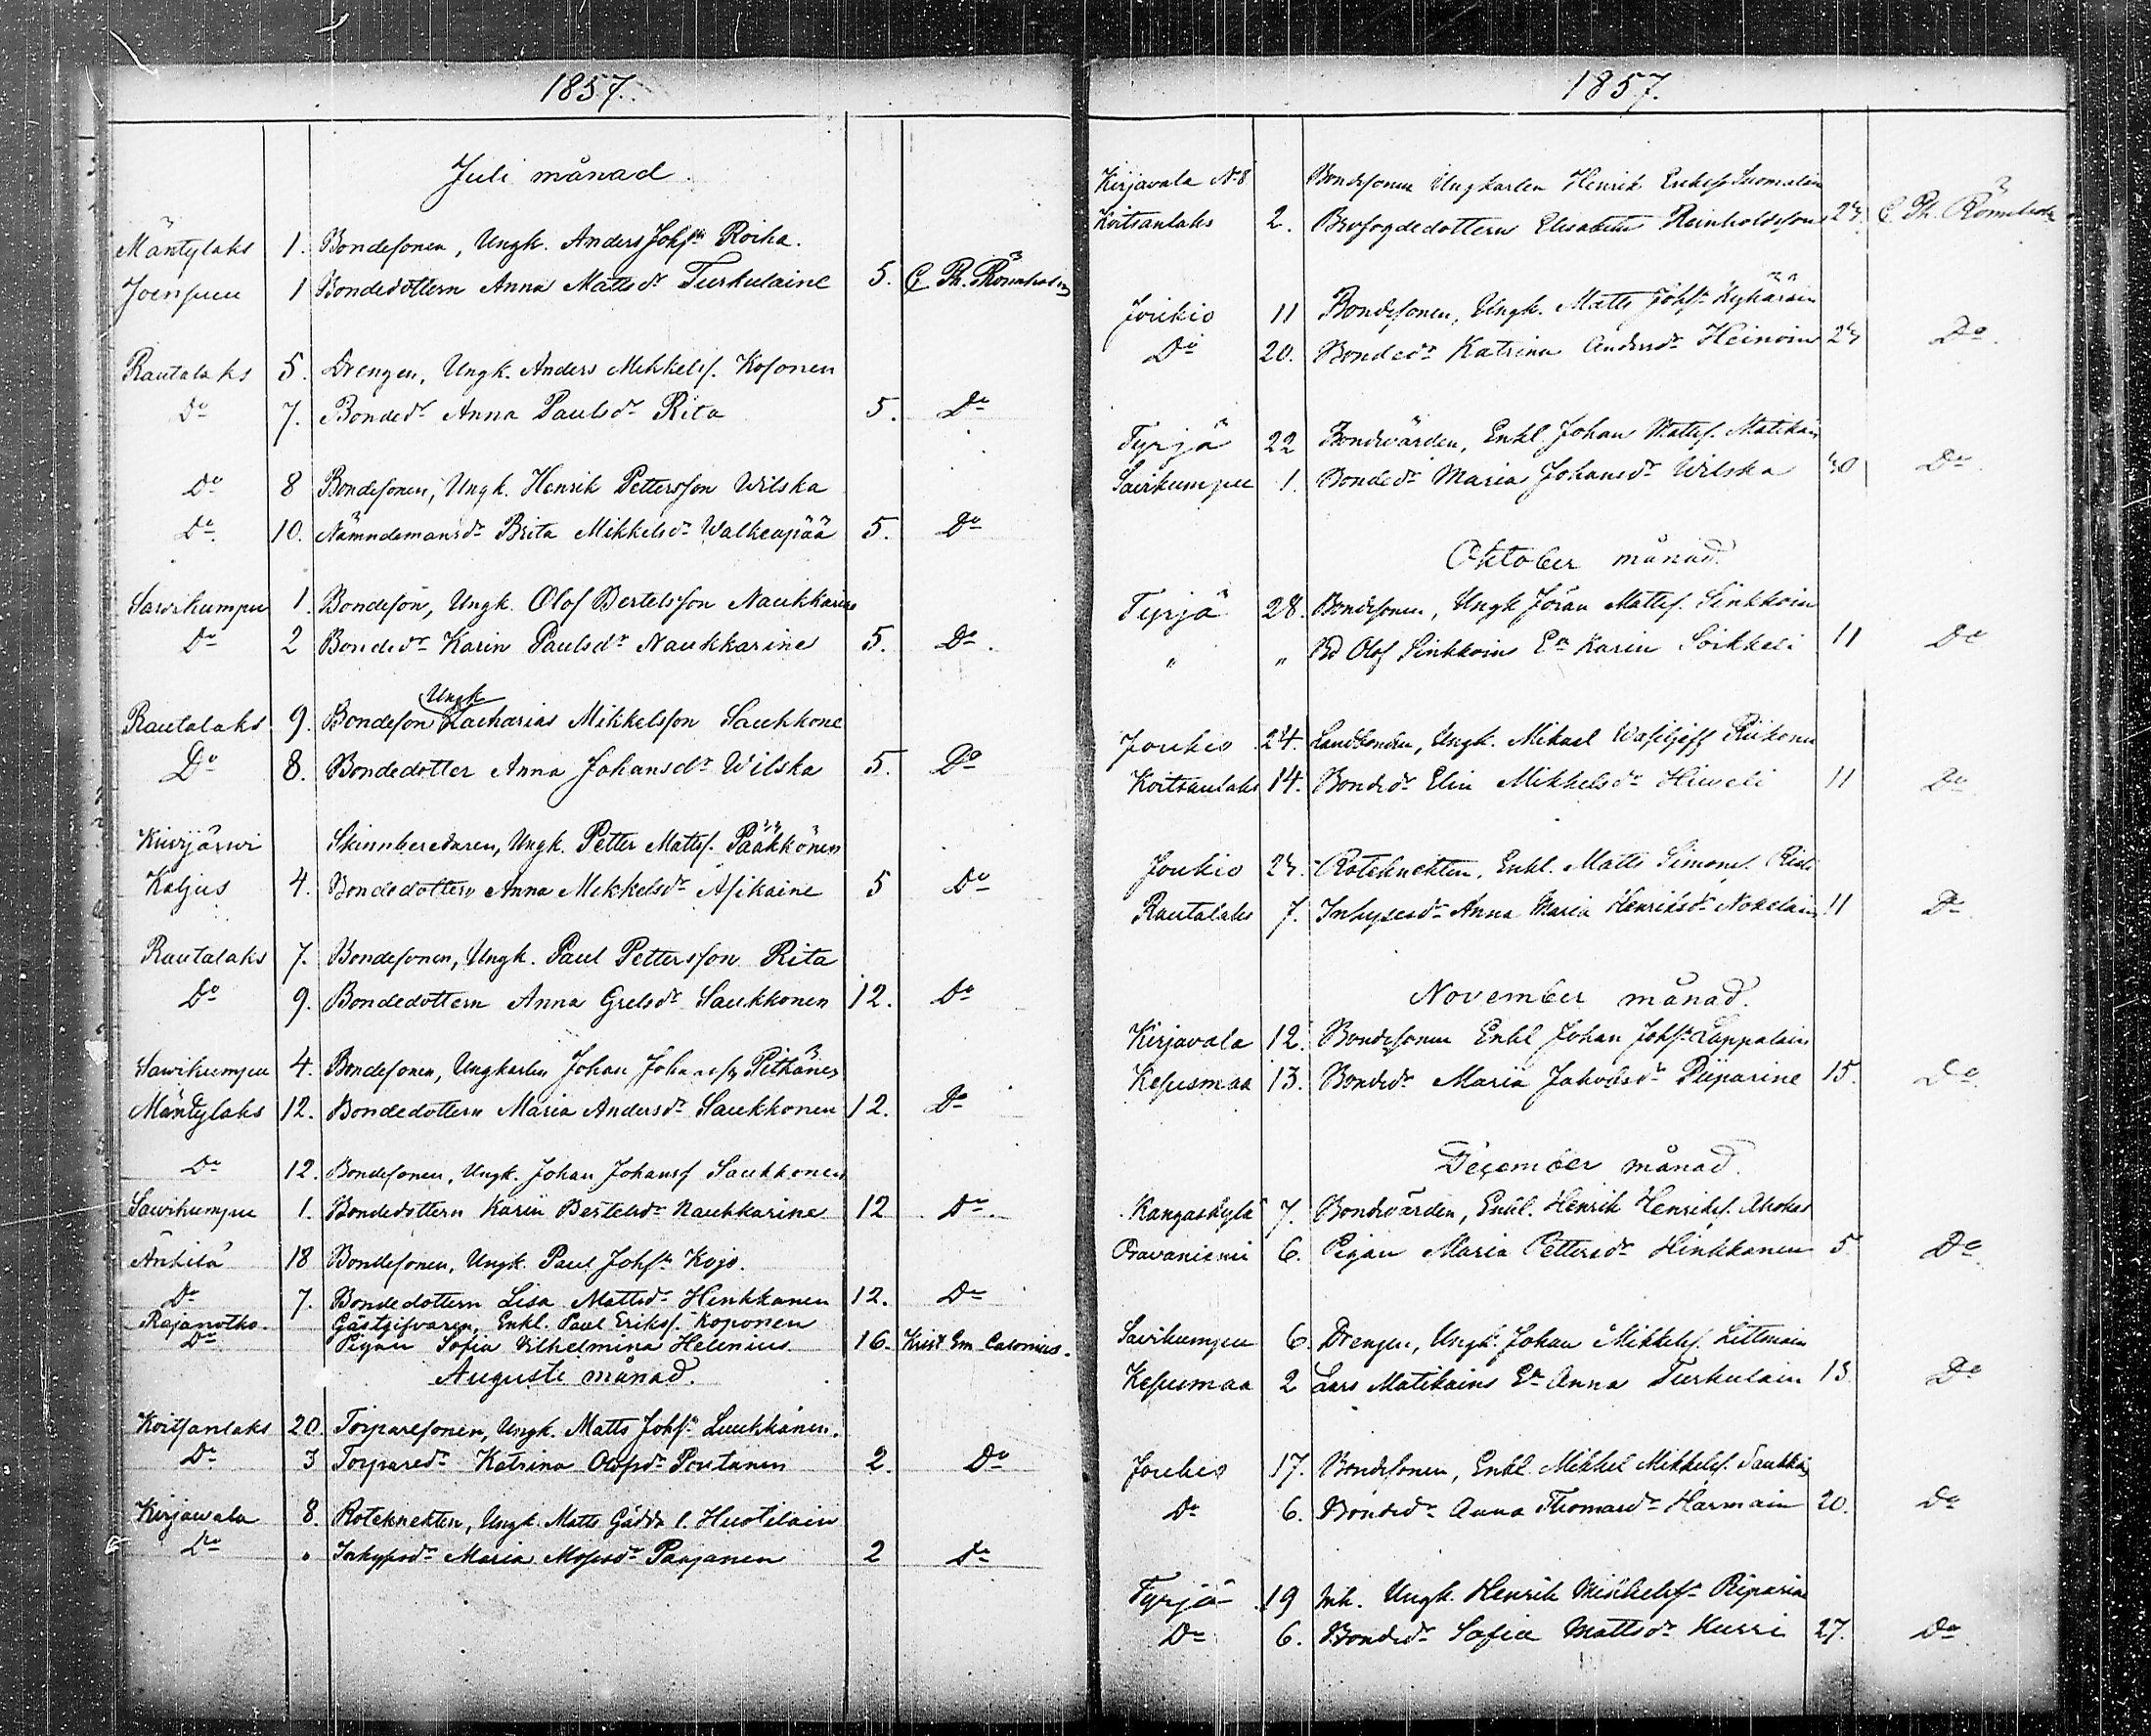 1857.
Juli månad.
Mäntylaks 1. Bondesonen, Ungk. Anders Johss. Roika.
Joensuu 1 Bondedottern Anna Mattsdr Turkulaine 5. C. Ph. Rönnholm
Rautalaks 5. Drengen, Ungk. Anders Mikkelss. Kosonen
Do 7. Bondedr Anna Paulsdr Rita 5. Do
Do 8 Bondesonen, Ungk. Henrik Pettersson Wilska
Do 10. Nämndemansdr Brita Mikkelsdr Walkeapää 5. Do
Sawikumpu 1. Bondeson, Ungk. Olof Bertelsson Naukkarine
Do 2 Bondedr Karin Paulsdr Naukkarine 5. Do.
Rautalaks 9. Bondeson Ungk Zacharias Mikkelsson Saukkone
Do 8. Bondedotter Anna Johansdr Wilska 5. Do
Kivijärwi Skinnberedaren, Ungk. Petter Matts. Pääkkönen
Kaljus 4. Bondedottern Anna Mikkelsdr Asikaine 5 Do
Rautalaks 7. Bondesonen, Ungk. Paul Pettersson Rita
Do 9. Bondedottern Anna Grelsdr Saukkonen 12. Do
Sawikumpu 4. Bondesonen, Ungkarlen Johan Johanss Pitkänen
Mäntylaks 12. Bondedottern Maria Andersdr Saukkonen 12. Do
Do 12. Bondesonen, Ungk. Johan Johanss Saukkonen
Sawikumpu 1. Bondedottern Karin Bertelsdr Naukkarine 12 Do.
Änkilä 18 Bondesonen, Ungk. Paul Johss. Kojo.
Do 7. Bondedottern Lisa Mattsdr Hinkkanen 12. Do
Rajanotko. Gästgifvaren, Enkl. Paul Erikss. Koponen
Do Pigan Sofia Vilhelmina Helenius 16. Krist Em Calonius.
Augusti månad.
Koitsanlaks 20. Torparesonen, Ungk. Matts Johss. Luukkanen.
Do 3 Torparedr Katrina Olofsdr Poutanen 2. Do
Kirjawala 8. Roteknekten, Ungk. Matts Gädda l. Huotilain
Do " Inhysdr Maria Mosesdr Paajanen 2 Do
1857.
Kirjavala No 8 Bondesonen Ungkarlen Henrik Erikss Suomalain
Koitsanlaks 2. Brofogdedottern Elisabeth Reinholdsson 23. C. Ph. Rönnholm
Joukio 11 Bondesonen, Ungk. Matts Johss.
Do 20. Bondedr Katrina Andersdr Heinoin 23 Do.
Tyrjä 22 Bondvärden, Enkl. Johan Matss. Matikain
Savikumpu 1. Bondedr Maria Johansdr Wilska 30 Do.
Oktober månad.
Tyrjä 28. Bondesonen, Ungk Jöran Mattss. Sinkkoin
" " Bd Olof Sinkkoins Ea Karin Soikkeli 11 Do
Joukio 24. Landbonden, Ungk. Mikael Wasiljeff Riikonen
Koitsanlaks 14. Bondedr Elin Mikkelsdr Hiweli 11 Do
Joukio 23. Roteknekten, Enkl. Matts Simons.
Rautalaks 7. Inhysesdr Anna Maria Henriksdr Nokelain 11 Do
November månad.
Kirjavala 12. Bondesonen Enkl Johan Johss. Lappalain
Kesusmaa 13. Bondedr Maria Jakobsdr Piiparine 15. Do.
December månad.
Kangaskylä 7. Bondvärden, Enkl. Henrik Henrikss. Ahokas
Oravaniemi 6. Pigan Maria Pettersdr Hinkkanen 5 Do.
Savikumpu 6. Drengen, Ungk. Johan Mikkelss. Littmain
Kesusmaa 2 Lars Matikains Ea Anna Turkulain 13 Do
Joukio 17. Bondesonen, Enkl. Mikkel Mikkelss. Saukko
Do 6. Bondedr Anna Thomasdr Harmain 20. Do
Tyrjä 19 Inh. Ungk. Henrik Mikkelss. Riparin
Do 6. Bondedr Sofia Mattsdr Hurri 27. Do.